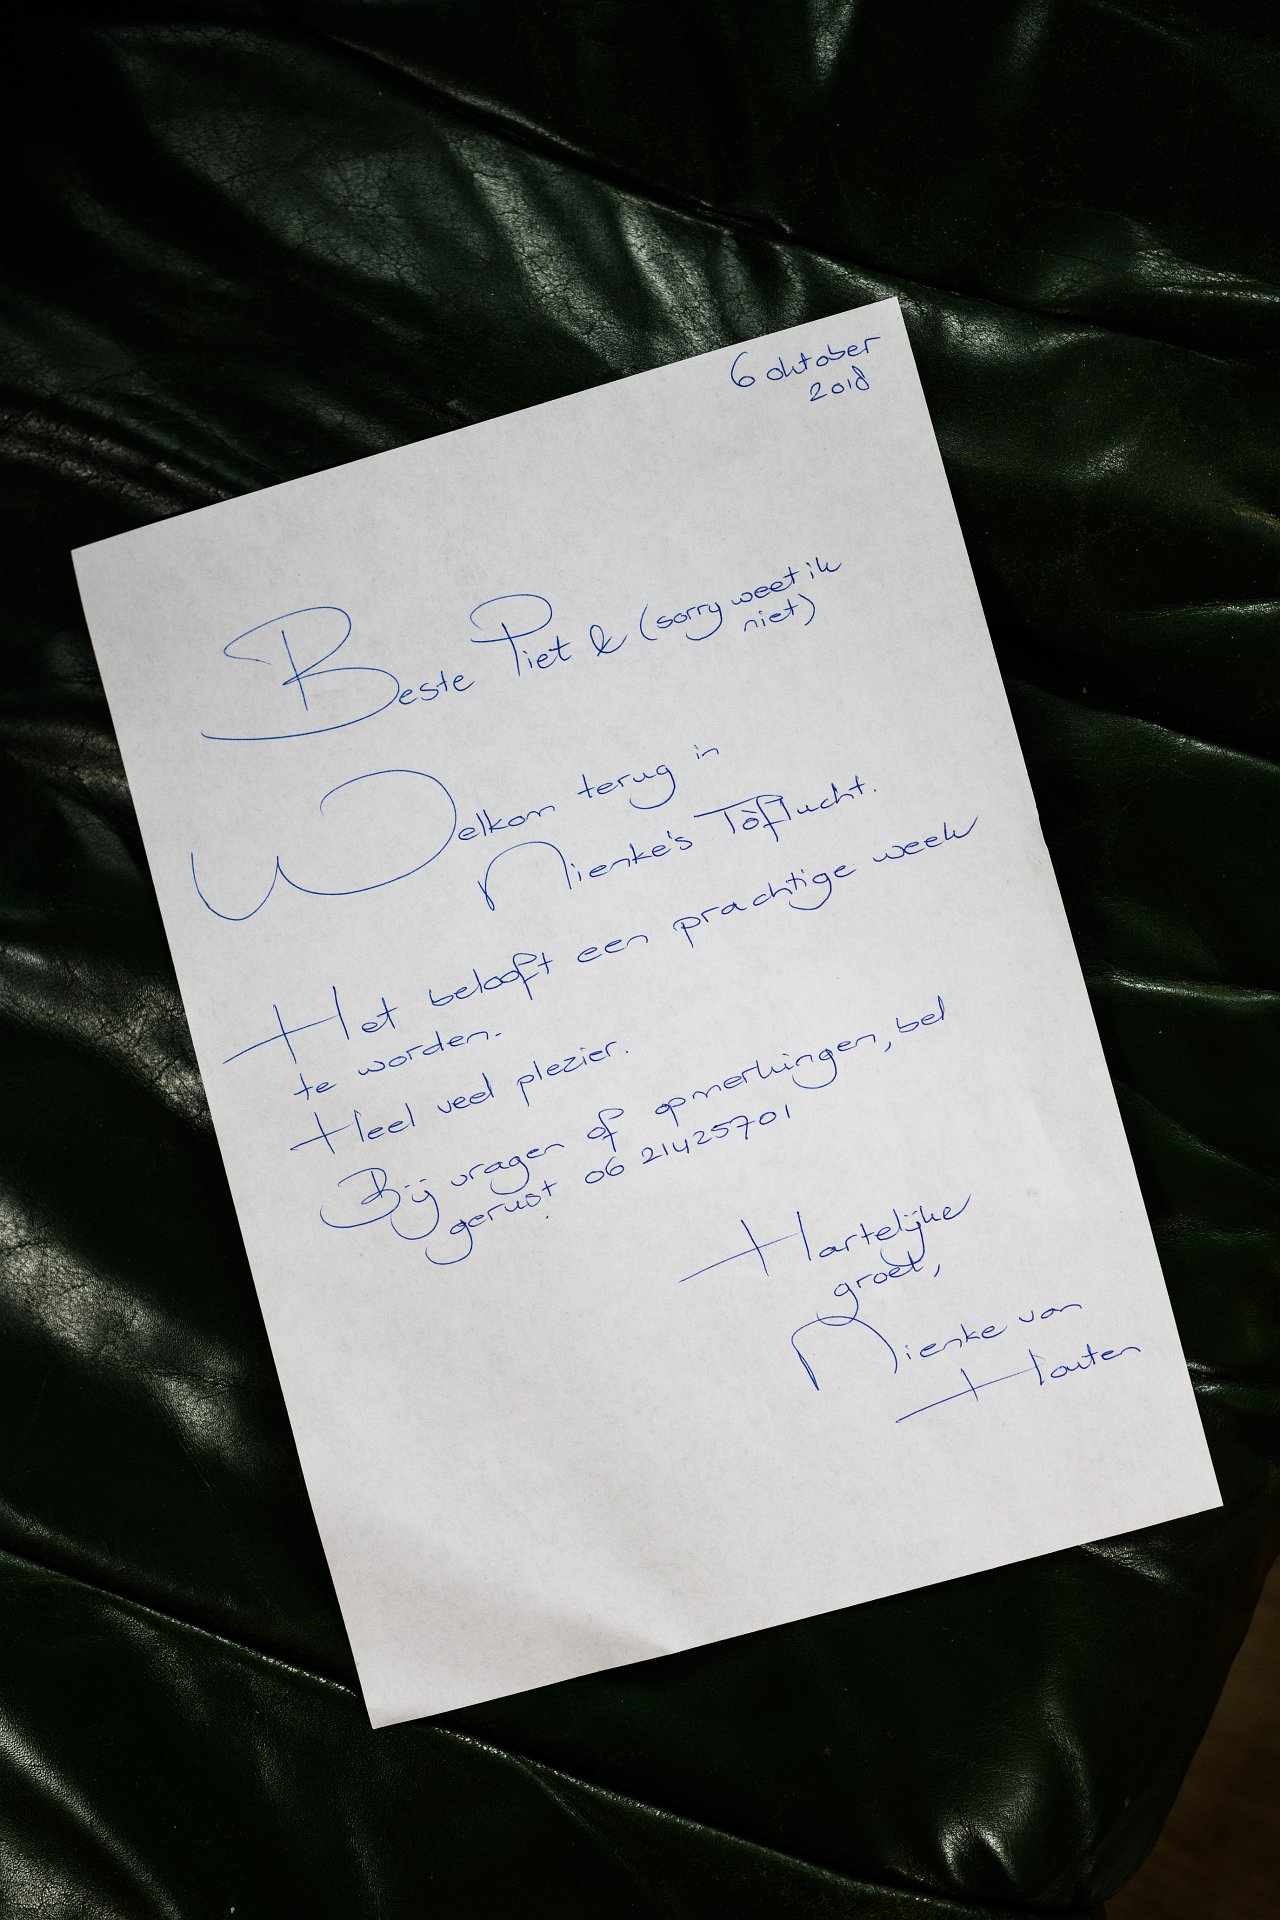 6 oktober
2018
Beste Piet & (sorry weet ik
niet)
Welkom terug in
Nienke's Tòflucht.
Het belooft een prachtige week
te worden.
Heel veel plezier.
Bij vragen of opmerkingen, bel
gerust 06 21425701
Hartelijke
groet,
Nienke van
Houten